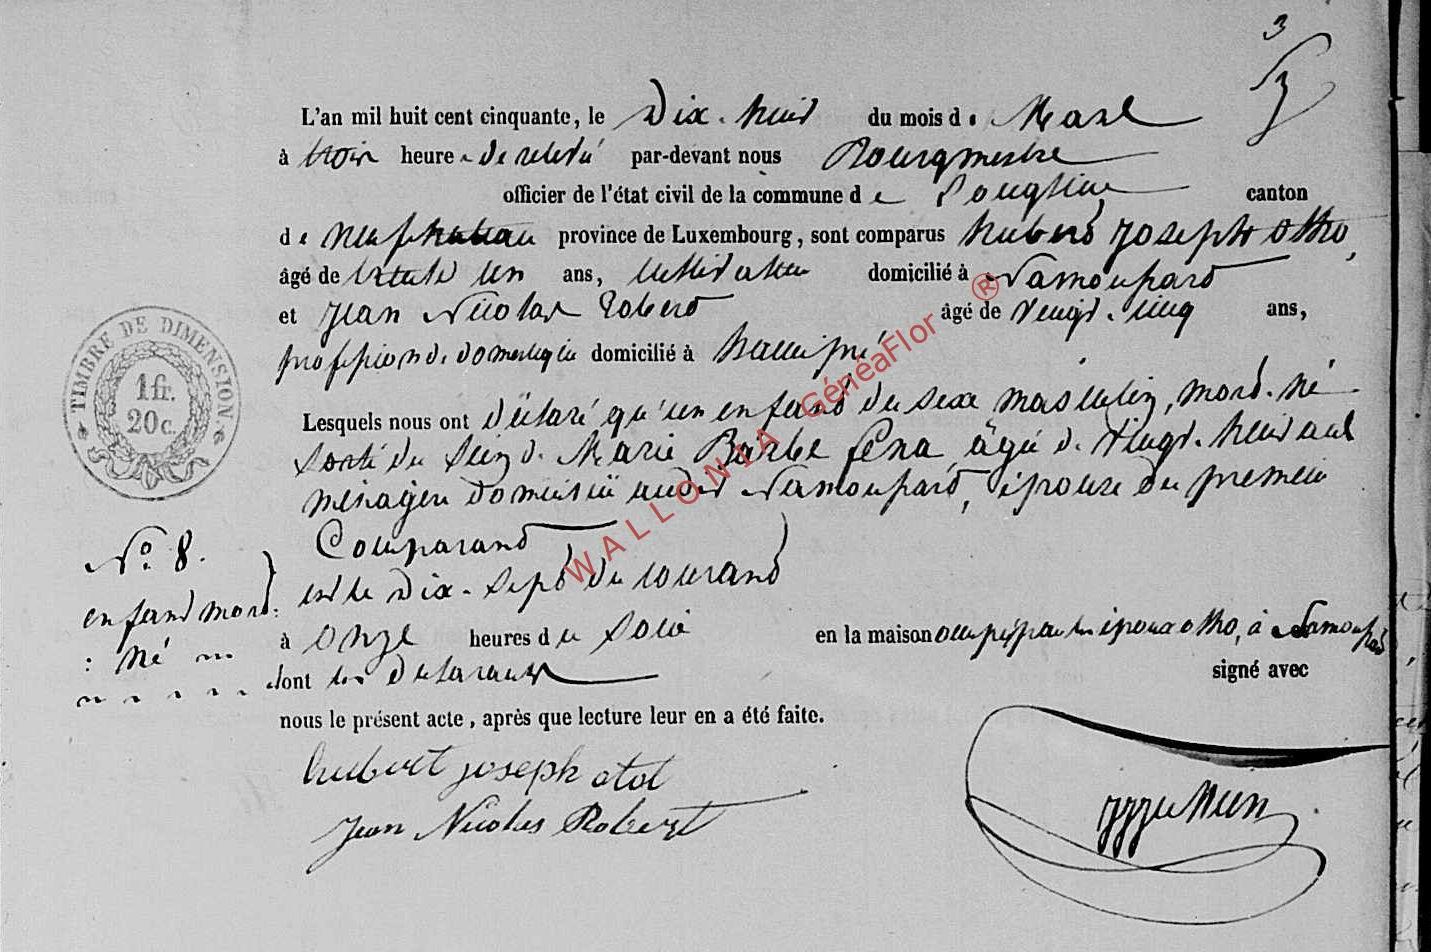 3
L'an mil huit cent cinquante, le Dix-huit du mois de Mars
à trois heures de relevé par-devant nous Bourgmestre
officier de l'état civil de la commune de Longlier canton
de neufchateau province de Luxembourg, sont comparus hubert joseph otto,
âgé de trente un ans, cultivateur domicilié à Namoussart
et Jean Nicolas Robert âgé de vingt-cinq ans,
profession de domestique domicilié à hamipré
Lesquels nous ont déclaré qu'un enfant du sexe masculin, mort-né
sorti du sein de Marie Barbe Léna âgée de vingt-neuf ans
ménagère domiciliée audit Namoussart, épouse du premier
Comparant
est le Dix-sept du courant
à onze heures du soir en la maison occupée par les époux otto, à Namoussart
dont les déclarants signé avec
nous le présent acte, après que lecture leur en a été faite.
hubert joseph otot
Jean Nicolas Robert
No. 8.
enfant mort-
: né
TIMBRE DE DIMENSION
1 fr.
20 c.
WALLONIA GénéaFlor ®